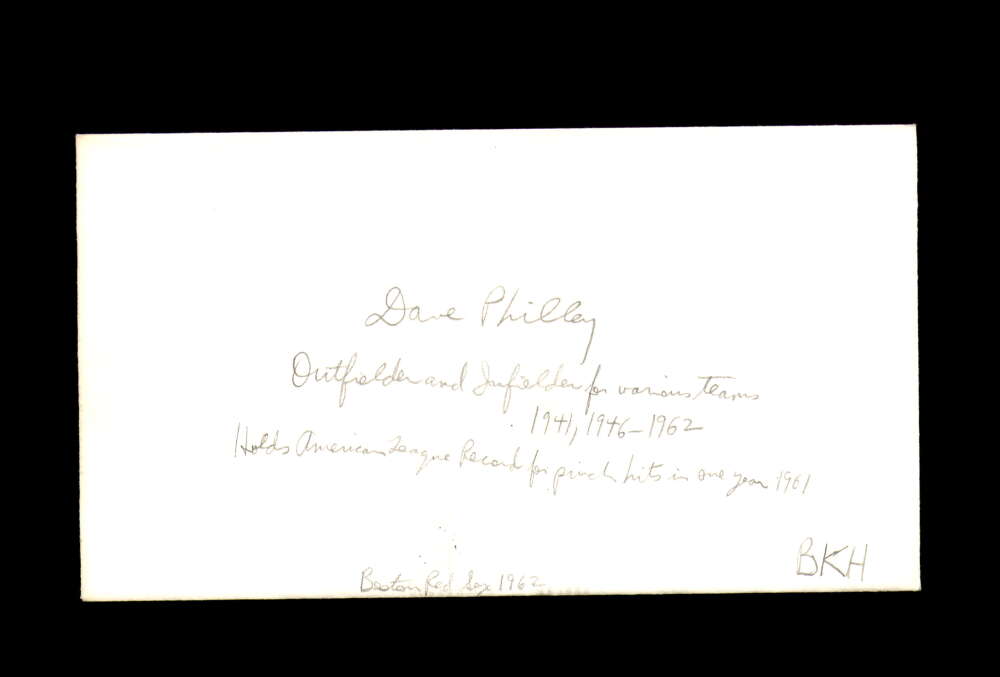 Dave Philley
Outfielder and Infielder for various teams
1941, 1946-1962
Holds American League Record for pinch hits in one year 1961
BKH
Boston Red Sox 1962